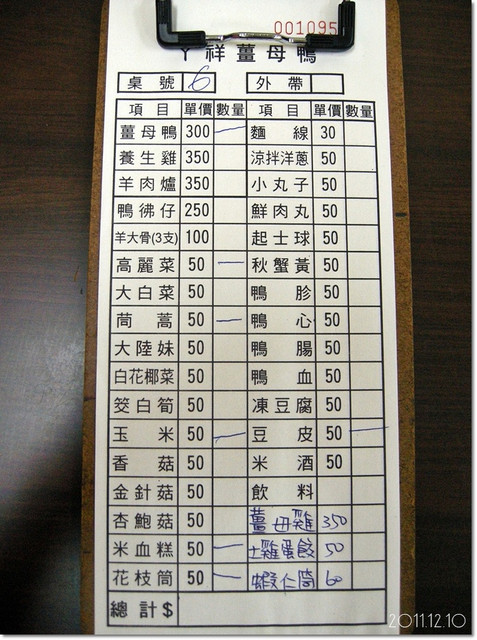 001095
丫祥薑母鴨
桌號 6 外帶
項目 單價 數量 項目 單價 數量
薑母鴨 300 一 麵線 30
養生雞 350 涼拌洋蔥 50
羊肉爐 350 小丸子 50
鴨彿仔 250 鮮肉丸 50
羊大骨(3支) 100 起士球 50
高麗菜 50 一 秋蟹黃 50
大白菜 50 鴨胗 50
茼蒿 50 一 鴨心 50
大陸妹 50 鴨腸 50
白花椰菜 50 鴨血 50
筊白筍 50 凍豆腐 50
玉米 50 一 豆皮 50 一
香菇 50 米酒 50
金針菇 50 飲料
杏鮑菇 50 薑母雞 350
米血糕 50 一 土雞蛋餃 50
花枝筒 50 一 蝦仁筒 60
總計$
2011.12.10